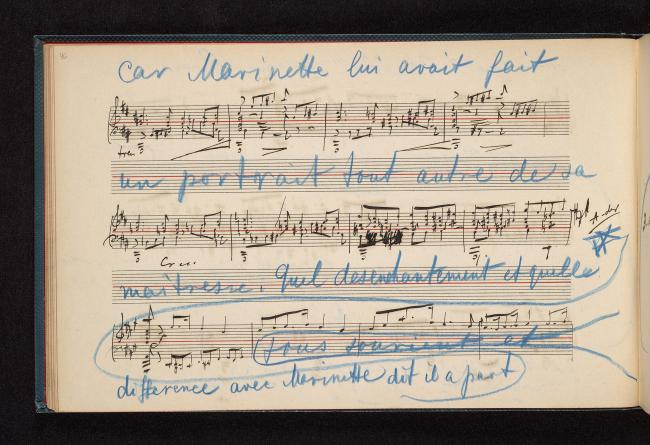 car Marinette lui avait fait
un portrait tout autre de sa
Cres.
maîtresse. Quel desenchantement et quelle
tous sourient et
difference avec Marinette dit il a part